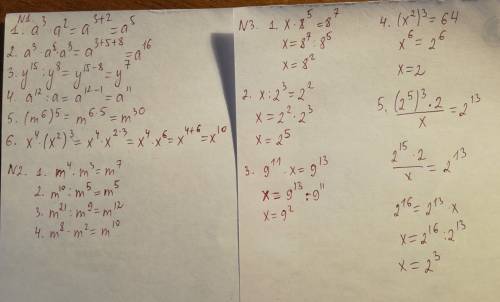 N1.
1. a³ · a² = a³⁺² = a⁵
2. a³ · a⁵ · a⁸ = a³⁺⁵⁺⁸ = a¹⁶
3. y¹⁵ : y⁸ = y¹⁵⁻⁸ = y⁷
4. a¹² : a = a¹²⁻¹ = a¹¹
5. (m⁶)⁵ = m⁶·⁵ = m³⁰
6. x⁴ · (x²)³ = x⁴ · x²·³ = x⁴ · x⁶ = x⁴⁺⁶ = x¹⁰
N2. 1. m⁴ · m³ = m⁷
2. m¹⁰ : m⁵ = m⁵
3. m²¹ : m⁹ = m¹²
4. m⁸ · m² = m¹⁰
N3. 1. x · 8⁵ = 8⁷
x = 8⁷ : 8⁵
x = 8²
2. x : 2³ = 2²
x = 2² · 2³
x = 2⁵
3. 9¹¹ · x = 9¹³
x = 9¹³ : 9¹¹
x = 9²
4. (x²)³ = 64
x⁶ = 2⁶
x = 2
5. (2⁵)³ · 2 / x = 2¹³
2¹⁵ · 2 / x = 2¹³
2¹⁶ = 2¹³ · x
x = 2¹⁶ : 2¹³
x = 2³